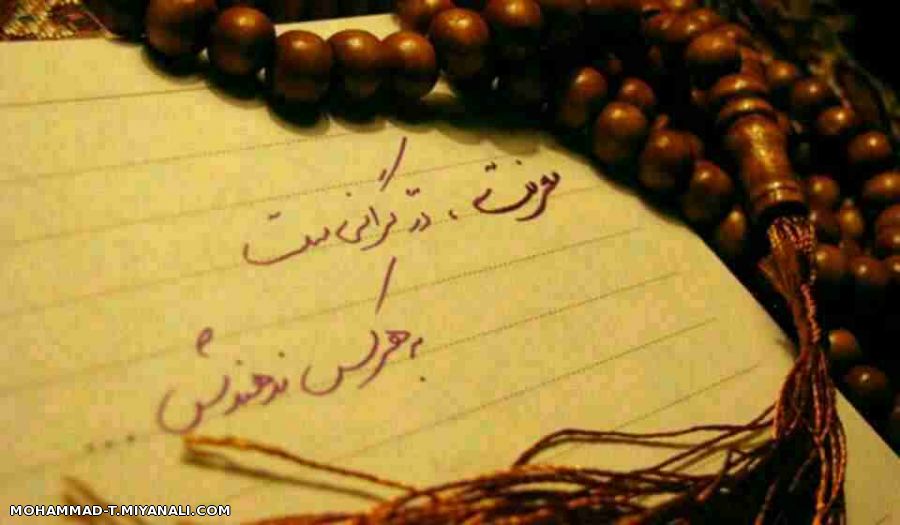 معرفت، درّ گرانی ست
به هر کس ندهندش ...
MOHAMMAD-T.MIYANALI.COM